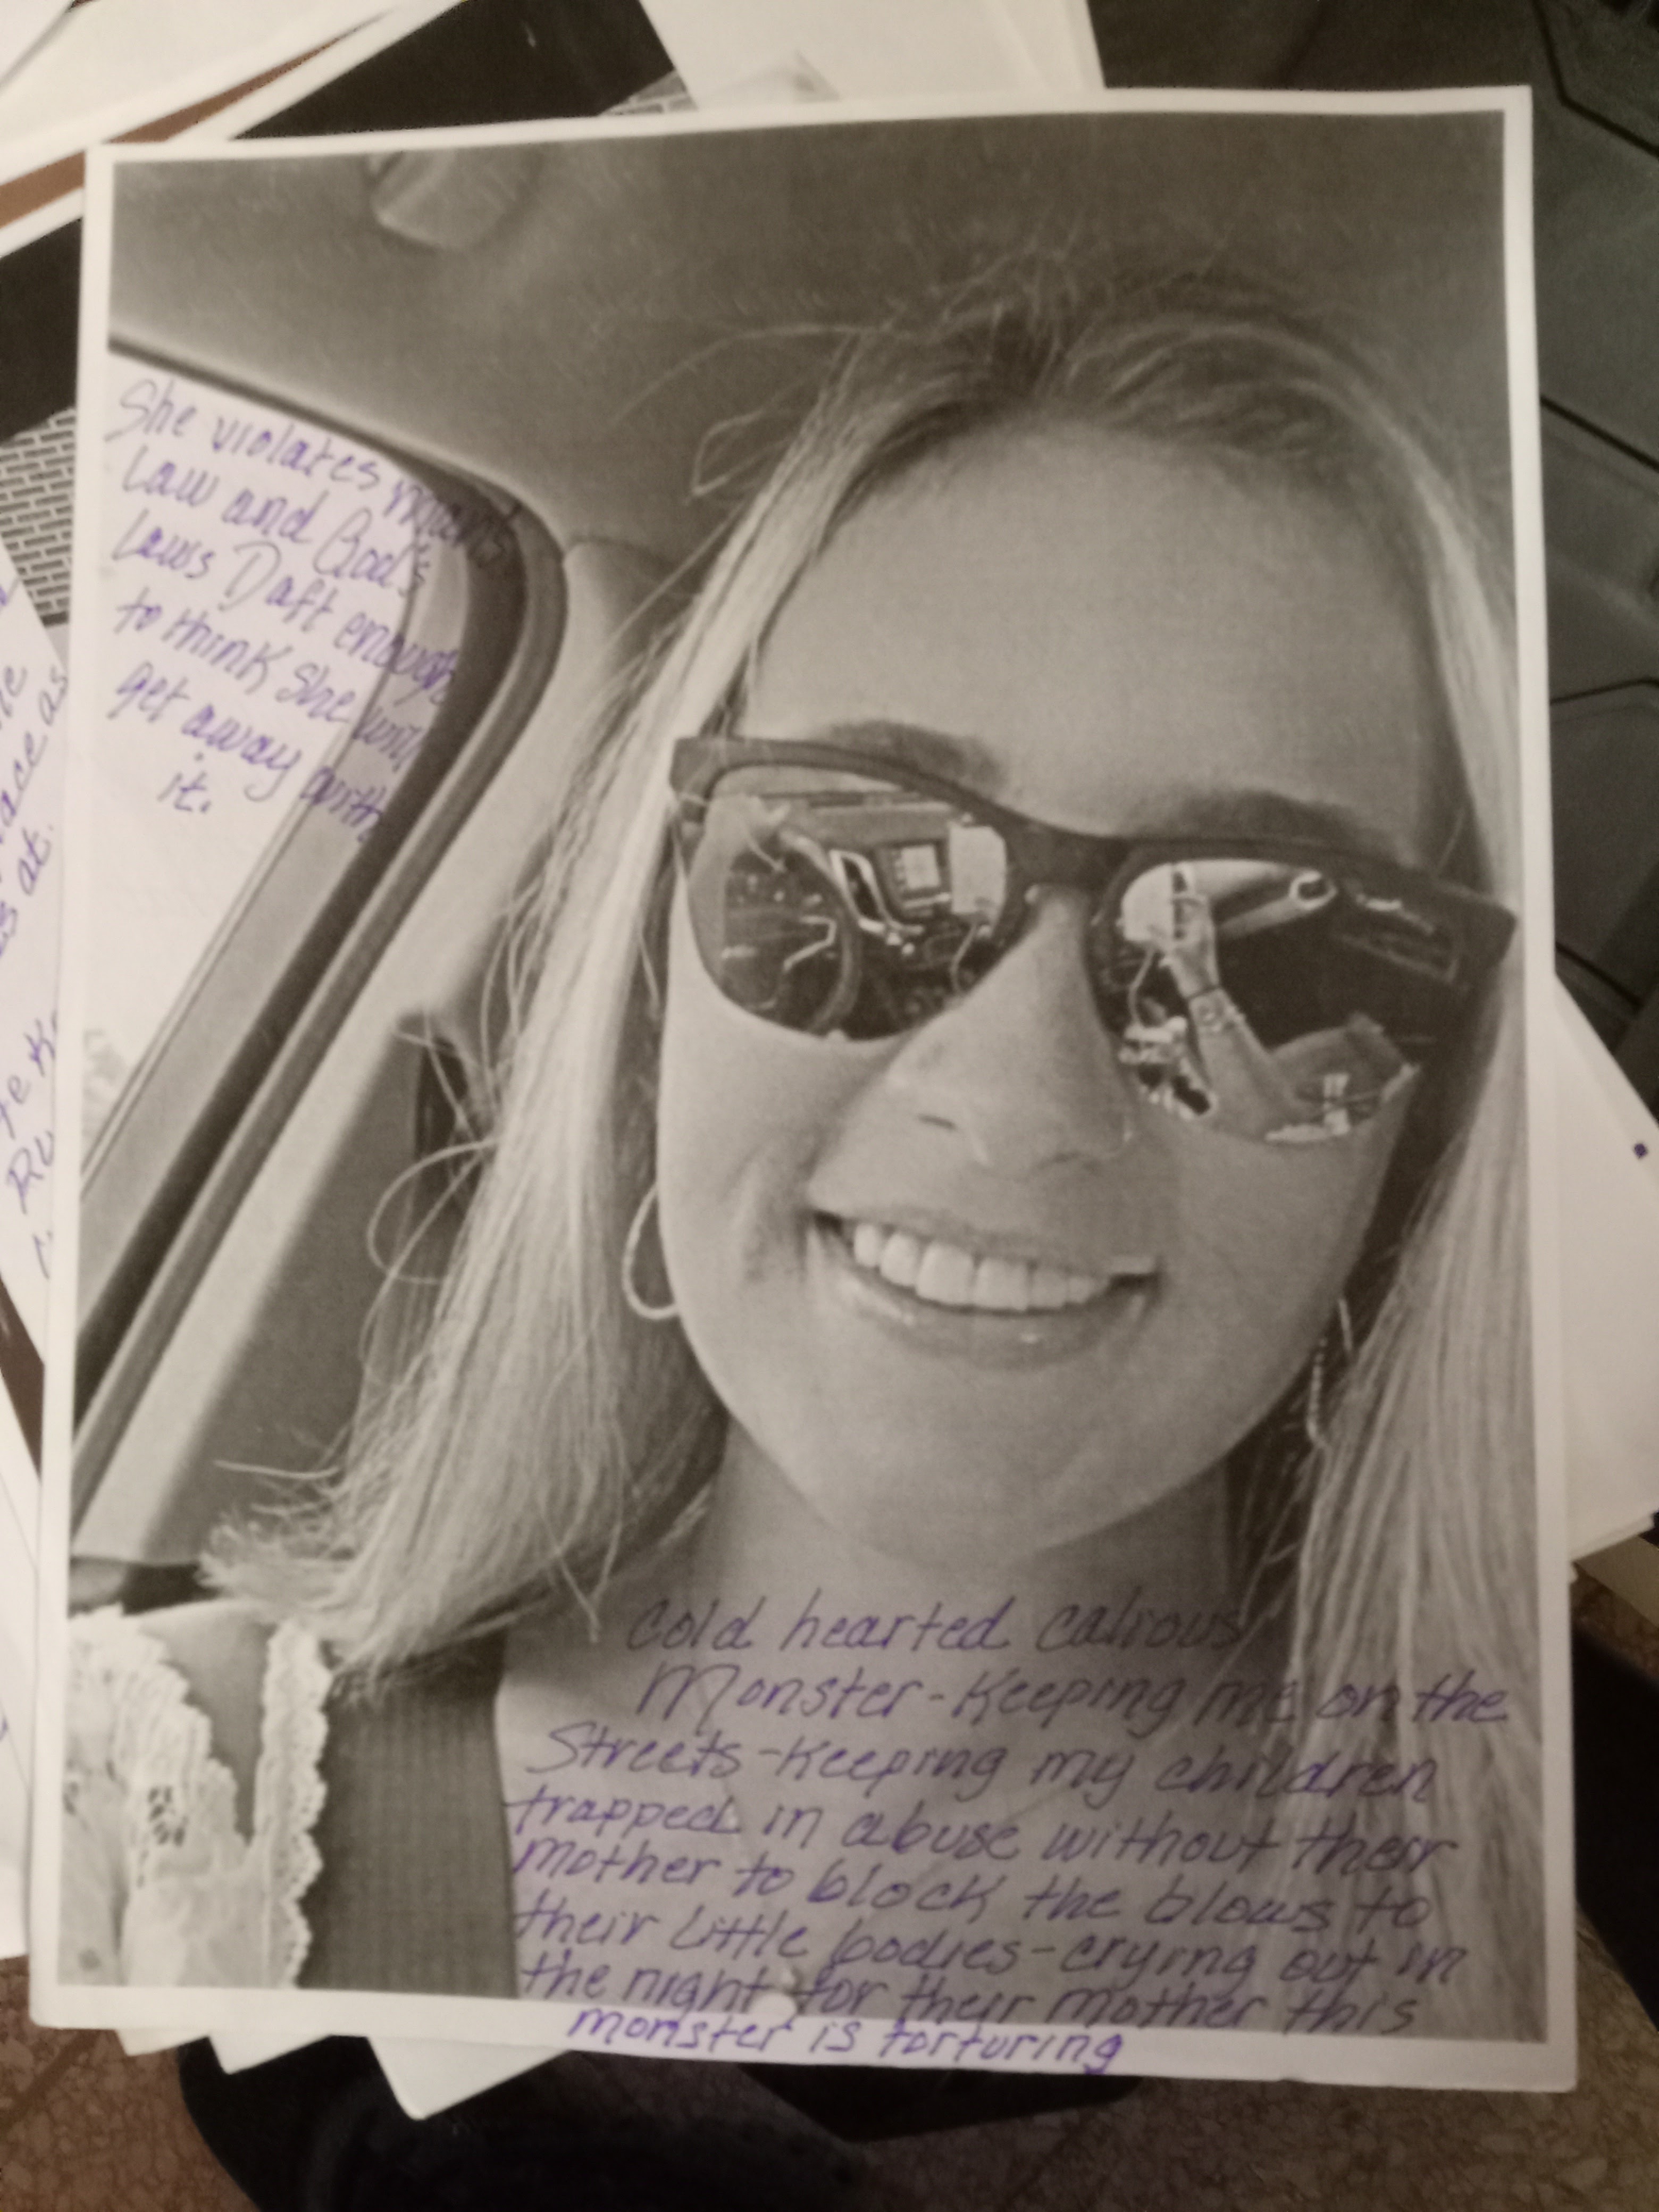 She violates man's
Law and God's
Laws Daft enough
to think she will
get away with
it.
ace as
at.
Cold hearted calious
Monster-Keeping me on the
Streets-Keeping my children
trapped in abuse without their
mother to block the blows to
their little bodies-crying out in
the night for their mother this
monster is torturing